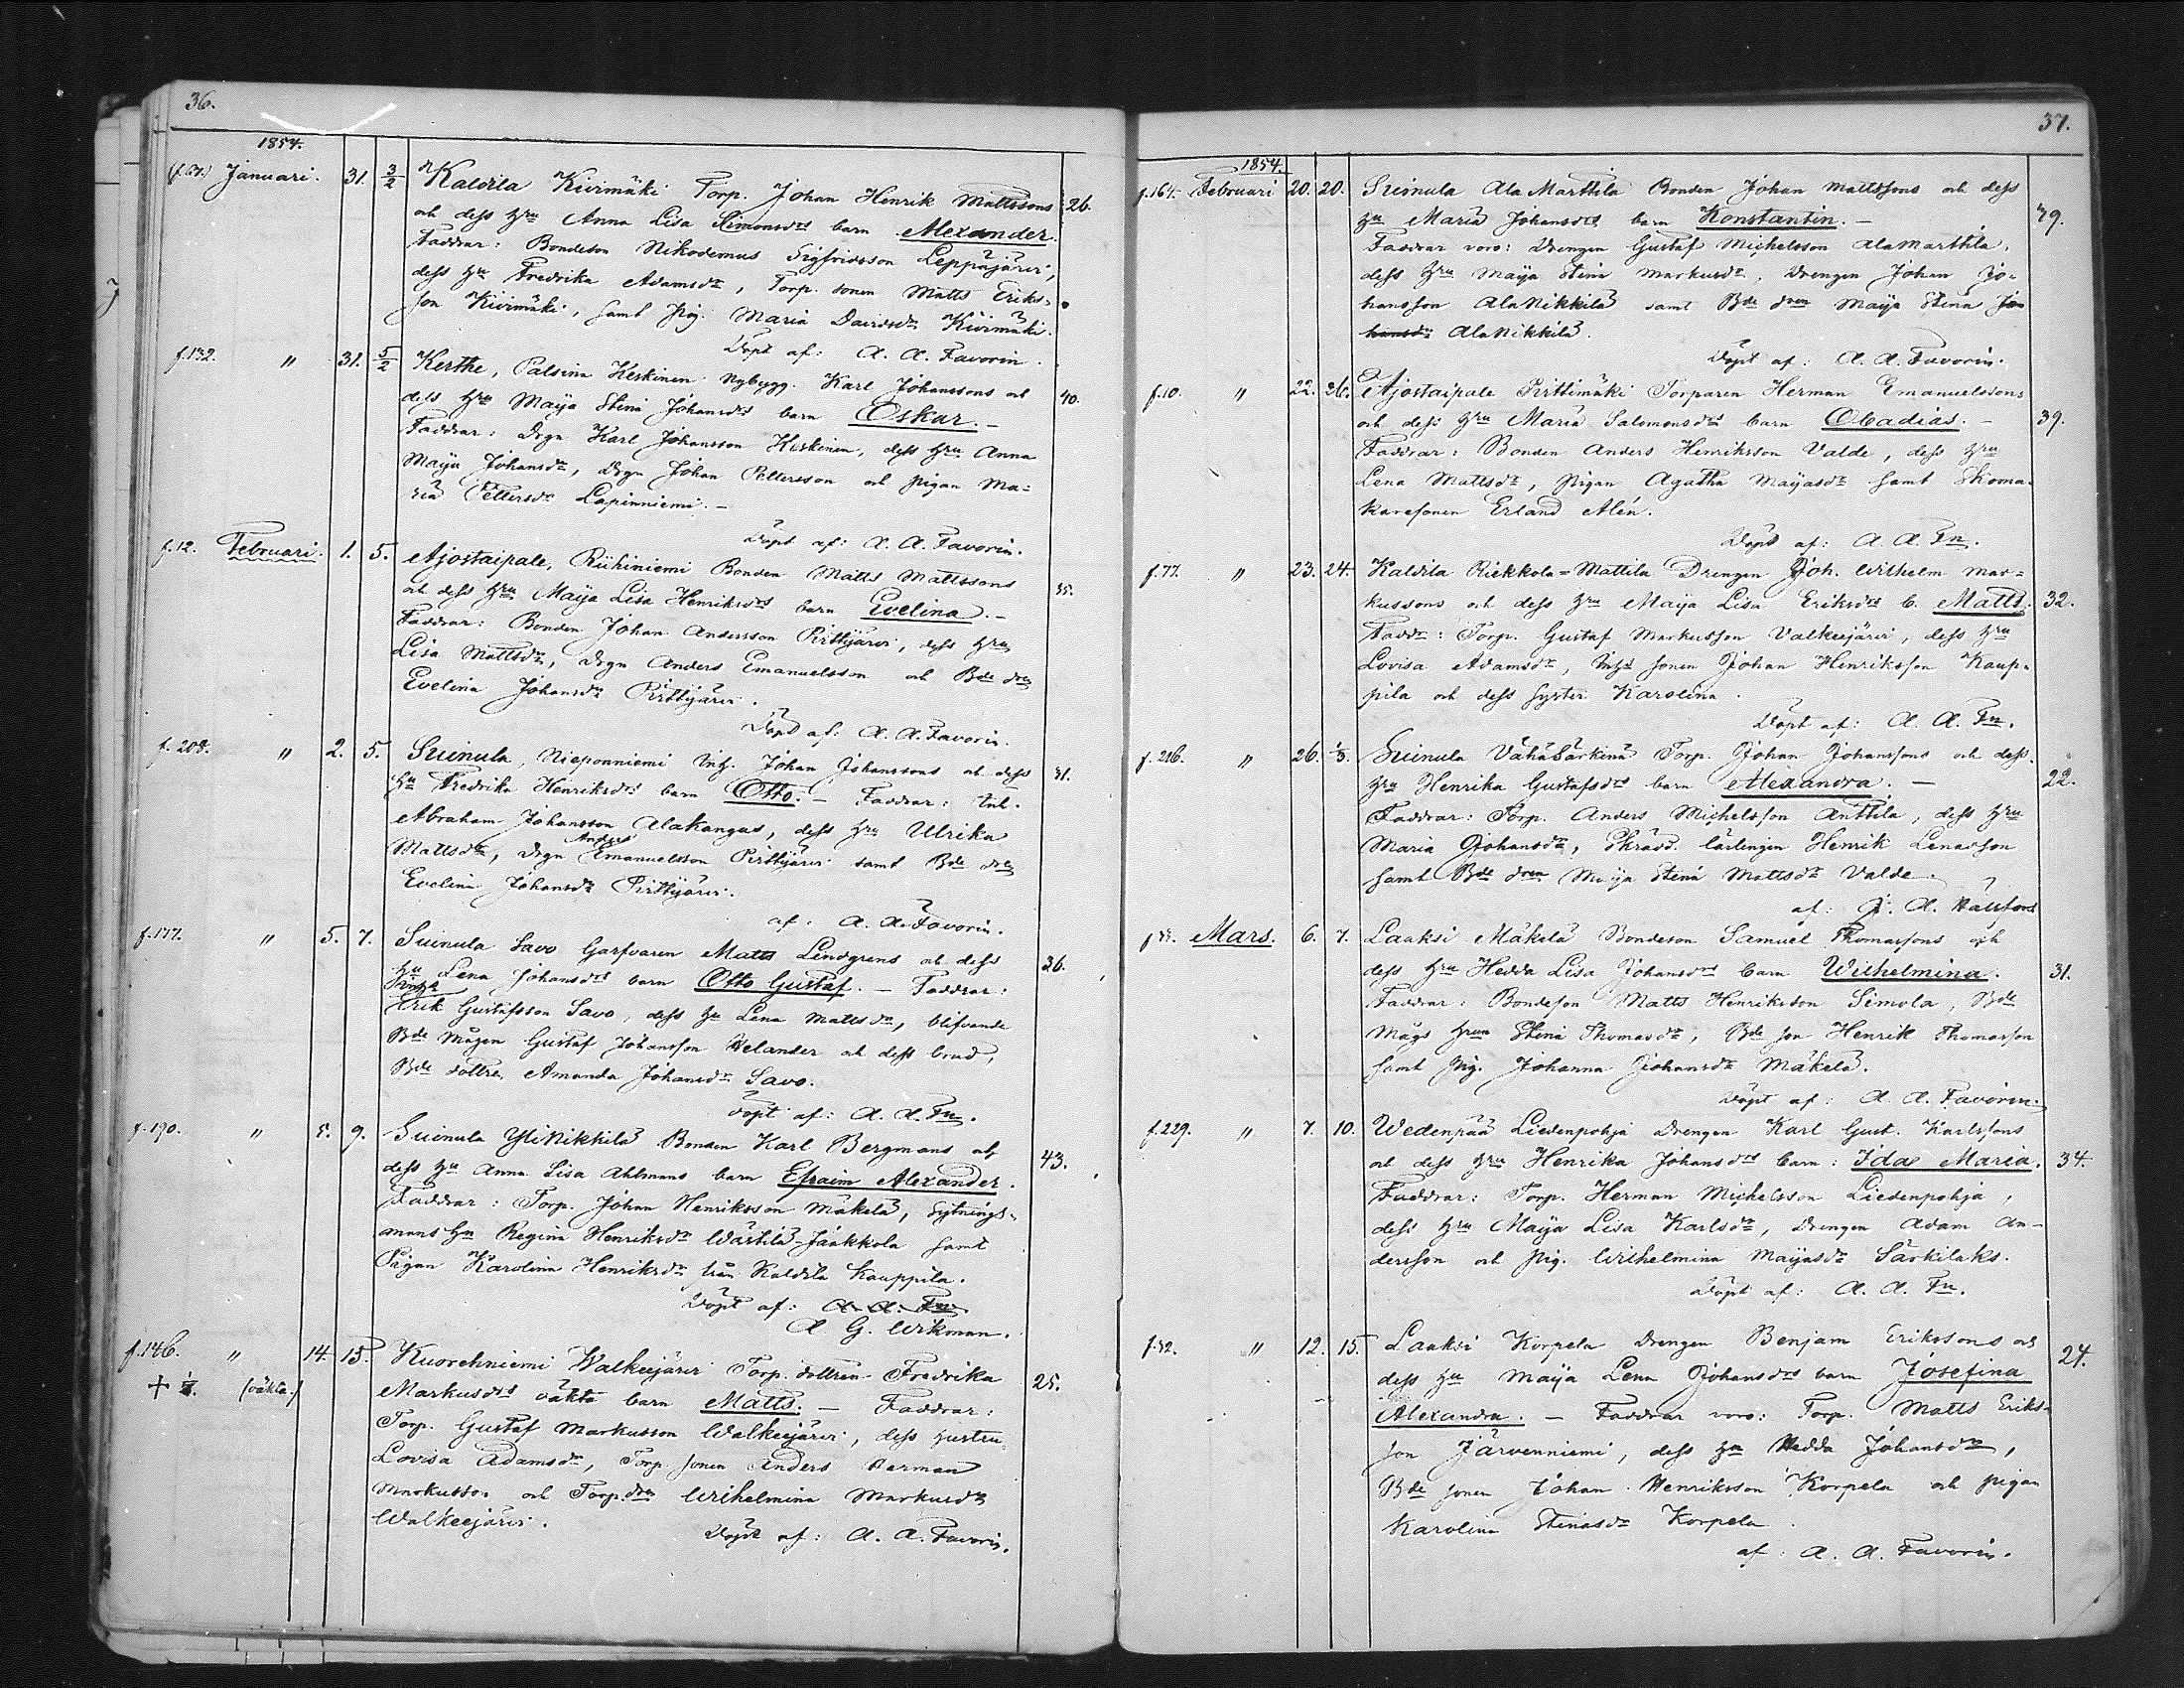 36.
1854.
(f.67.) Januari. 31. 3/2 Kaldila Kivimäki Torp. Johan Henrik Mattssons 26.
och dess Hru Anna Lisa Simonsdrs barn Alexander.
Faddrar: Bondeson Nikodemus Sigfridsson Leppäjärvi,
dess Hu Fredrika Adamsdr, Torp. sonen Matts Eriks-
son Kivimäki, samt Pig. Maria Davidsdr Kivimäki.
Döpt af: A. A. Favorin.
f.132. " 31. 5/2 Kerthe, Palsina Keskinen Nybygg. Karl Johanssons och 40.
dess Hru Maija Stina Johansdrs barn Oskar. –
Faddrar: Drgn Karl Johansson Keskinen, dess Hru Anna
Maija Johansdr, Drgn Johan Pettersson och pigan Ma-
ria Pettersdr Lapinniemi. –
Döpt af: A. A. Favorin.
f.12. Februari. 1. 5. Ajostaipale, Riihiniemi Bonden Matts Mattssons 35.
och dess Hru Maija Lisa Henriksdrs barn Evelina. –
Faddrar: Bonden Johan Andersson Pirttijärvi, dess Hru
Lisa Mattsdr, Drgn Anders Emanuelsson och Bde drn
Evelina Johansdr Pirttijärvi.
Döpt af: A. A. Favorin.
f. 208. " 2. 5. Suinula, Nieponniemi Inh. Johan Johanssons och dess 31.
Hu Fredrika Henriksdrs barn Otto. – Faddrar: Inh.
Abraham Johansson Alakangas, dess Hru Ulrika
Mattsdr, Drgn Anders Emanuelsson Pirttijärvi samt Bde drn
Evelina Johansdr Pirttijärvi.
af: A. A. Favorin.
f.177. " 5. 7. Suinula Savo Garfvaren Matts Lindgrens och dess 36.
Hu Lena Johansdrs barn Otto Gustaf. – Faddrar:
Erik Gustafsson Savo, dess Hu Lena Mattsdr, blifvande
Bde mågen Gustaf Johansson Helander och dess brud,
Bde dottren Amanda Johansdr Savo.
Döpt af: A. A. Fn.
f.190. " 5. 9. Suinula YliNikkilä Bonden Karl Bergmans och 43.
dess Hu Anna Lisa Ahlmans barn Efraim Alexander.
Faddrar: Torp. Johan Henriksson Mäkelä, Sytnings-
mans Hu Regina Henriksdr Wärtilä-Jaakkola samt
Pigan Karolina Henriksdr från Kaldila Kauppila.
Döpt af: A. A. Fn.
A G. Wikman.
f.146. " 14. 15. Kuorehniemi Walkeejärvi Torp. dottren Fredrika 25.
+ (oäkta.) Markusdrs oäkta barn Matts. – Faddrar:
Torp. Gustaf Markusson Walkeejärvi, dess hustru
Lovisa Adamsdr, Torp. sonen Anders Herman
Markusson och Torp.drn Wilhelmina Markusdr
Walkeejärvi.
Döpt af: A. A. Favorin.
37.
1854.
f.164. Februari 20. 20. Suinula AlaMarttila Bonden Johan Mattssons och dess
Hu Maria Johansdrs barn Konstantin. – 39.
Faddrar voro: Drengen Gustaf Michelsson AlaMarttila,
dess Hru Maija Stina Markusdr, Drengen Johan Jo-
hansson AlaNikkilä samt Bde dren Maija Stina Jo-
hansdr AlaNikkilä.
Döpt af: A. A. Favorin.
f.10. " 22. 26. Ajostaipale Pirttimäki Torparen Herman Emanuelssons
och dess Hru Maria Salomonsdrs barn Obadias. – 39.
Faddrar: Bonden Anders Henriksson Valde, dess Hru
Lena Mattsdr, pigan Agatha Maijasdr samt Skoma-
karesonen Erland Alén.
Döpt af: A. A. Fn.
f.77. " 23. 24. Kaldila Riekkola=Mattila Drengen Joh. Wilhelm Mar-
kussons och dess Hru Maija Lisa Eriksdrs b. Matts. 32.
Faddr: Torp. Gustaf Markusson Valkeejärvi, dess Hru
Lovisa Adamsdr, Inhs sonen Johan Henriksson Kaup-
pila och dess syster Karolina.
Döpt af: A. A. Fn.
f.216. " 26. 1/3. Suinula VähäSärkinä Torp. Johan Johanssons och dess
Hru Henrika Gustafsdrs barn Alexandra. – 22.
Faddrar: Torp. Anders Michelsson Anttila, dess Hru
Maria Johansdr, Skrädd. lärlingen Henrik Lenasson
samt Bde dren Maija Stina Mattsdr Valde.
af: J. A. Hällfors
Mars. 6. 7. Laaksi Mäkelä Bondeson Samuel Thomassons och
dess Hru Hedda Lisa Johansdrs barn Wilhelmina. 31.
Faddrar: Bondeson Matts Henriksson Simola, Bde
mågs Hrun Stina Thomasdr, Bde son Henrik Thomasson
samt Pig. Johanna Johansdr Mäkelä.
Döpt af: A. A. Favorin.
f.229. " 7. 10. Wedenpää Liedenpohja Drengen Karl Gust. Karlssons
och dess Hru Henrika Johansdrs barn: Ida Maria. 34.
Faddrar: Torp. Herman Michelsson Liedenpohja,
dess Hru Maija Lisa Karlsdr, Drengen Adam An-
dersson och Pig. Wilhelmina Maijasdr Särkilaks.
Döpt af: A. A. Fn.
f.32. " 12. 15. Laaksi Korpela Drengen Benjam Erikssons och
dess Hu Maija Lena Johansdrs barn Josefina 24.
Alexandra. – Faddrar voro: Torp. Matts Eriks-
son Järvenniemi, dess Hu Hedda Johansdr,
Bde sonen Johan Henriksson Korpela och pigan
Karolina Stinasdr Korpela.
af: A. A. Favorin.